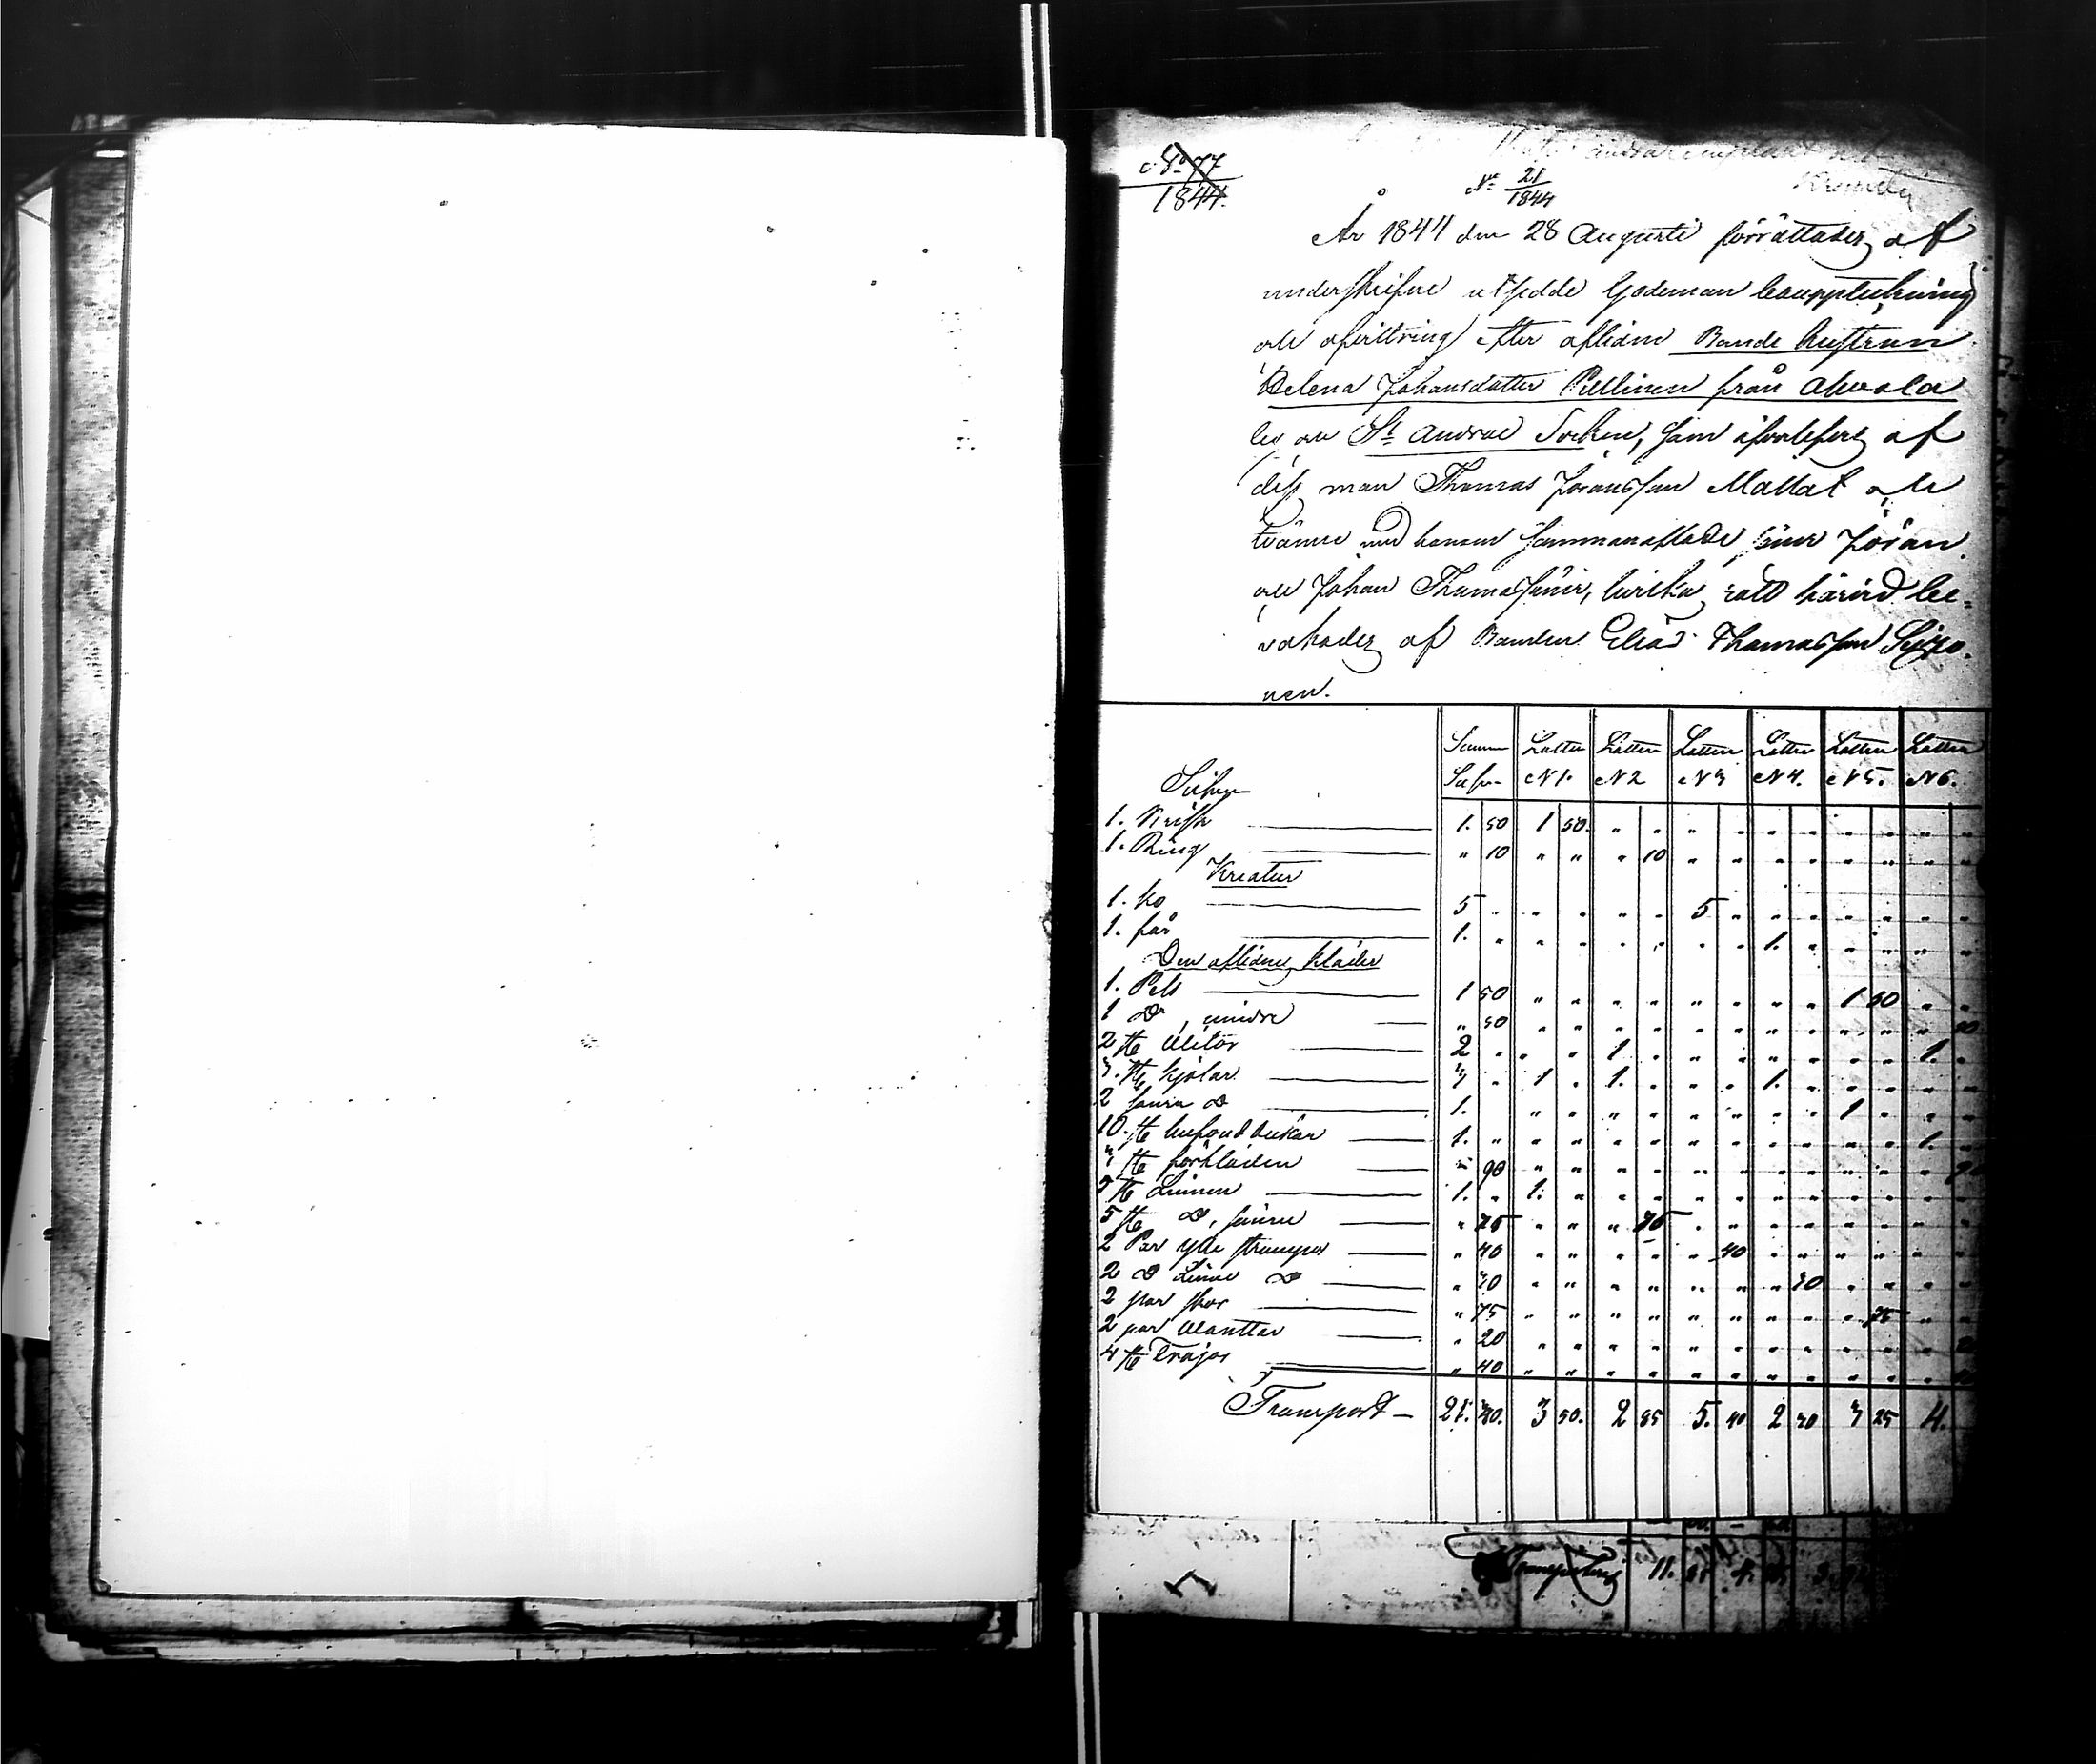 No 77
1844.
No 21
1844
År 1844 den 28 Augusti förrättades af
underskrifne utsedde Godeman bouppteckning
och afvittring efter aflidne Bonde hustrun
Helena Johansdotter Pellinen från Ahvola
by och St Andræ Socken, som äfverlefves af
dess man Thomas Jöransson Mattat och
tvänne med honom sammanaflade söner Jöran
och Johan Thomassöner, hvilkas rätt härvid be-
vakades af Bonden Elias Thomasson Sippo-
nen.
Summa Lotten Lotten Lotten Lotten Lotten Lotten
Silfver N 1. N 2 N 3 N 4. N 5. N 6.
Silfver
1. Brisk 1. 50 1 50. " " " " " " " " " "
1. Ring " 10 " " " 10 " " " " " " " "
Kreatur
1. ko 5 " " " " " 5 " " " " " " "
1. får 1. " " " " " " " 1. " " " " "
Den aflidnes kläder
1. Pels 1 50 " " " " " " " " 1 50 " "
1 Do, mindre " 50 " " " " " " " " " " " 50
2 st 2 " " " 1 " " " " " " " 1. "
3. st kjolar 3 " 1 " 1. " " " 1. " " " " "
2 sämre do 1. " " " " " " " " 1 " " "
10. st hufvud dukar 1. " " " " " " " " " " " 1. "
3 st förkläden " 90 " " " " " " " " " " " 90
3 st Linnen 1. " 1. " " " " " " " " " " "
5 st do, sämre " 75 " " " 75 " " " " " " " "
2 Par ylle strumpor " 40 " " " " " 40 " " " " " "
2 do Linne do " 30 " " " " " " " 30 " " " "
2 par skor " 75 " " " " " " " " " 75 " "
2 par Wanttar " 20 " " " " " " " " " " " 20
4 st Tröjor " 40 " " " " " " " " " " " 40
Transport — 21. 30. 3 50. 2 85 5. 40 2 30 3 25 4.
Transporteras 11.